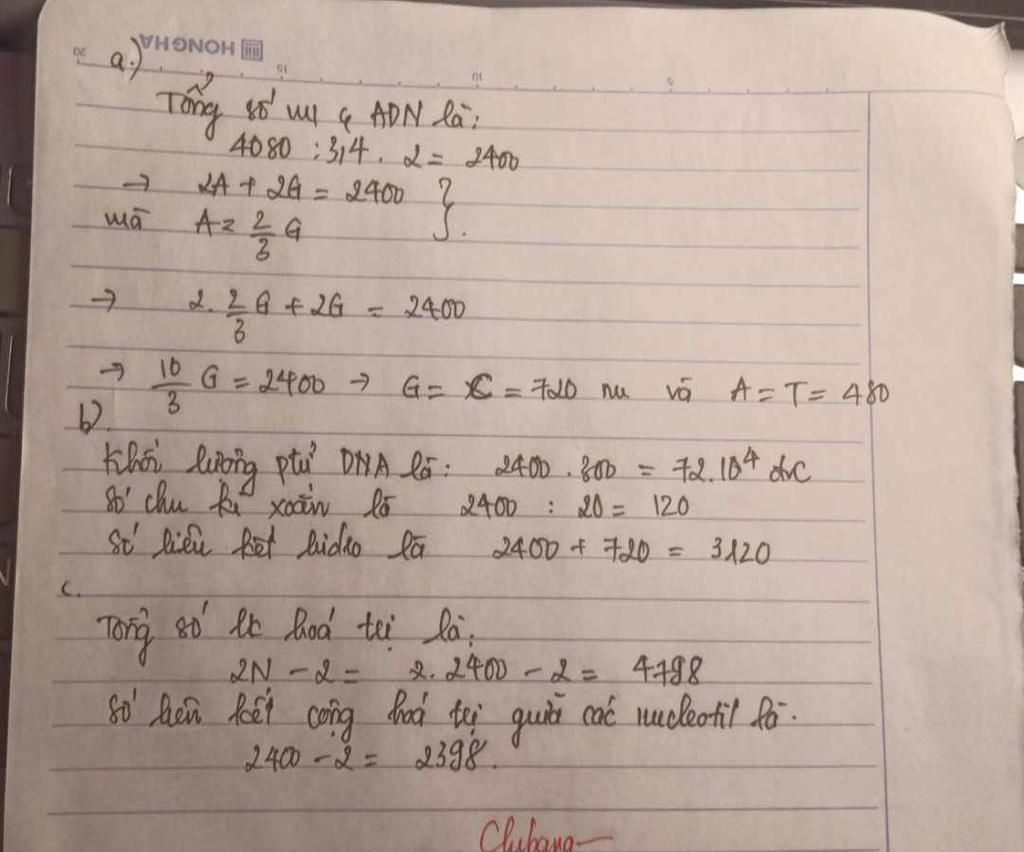 HONG HA
20 15 10 5
a.)
Tổng số nu ADN là:
4080 : 3,4 . 2 = 2400
→ 2A + 2G = 2400 }
mà A = 2/3 G
→ 2. 2/3 G + 2G = 2400
→ 10/3 G = 2400 → G = X = 720 nu và A = T = 480
b).
Khối lượng ptử DNA là: 2400 . 300 = 72.10⁴ đvC
Số chu kì xoắn là 2400 : 20 = 120
Số liên kết hidro là 2400 + 720 = 3120
c.
Tổng số lk hoá trị là:
2N - 2 = 2. 2400 - 2 = 4798
Số liên kết cộng hoá trị giữa các nucleotit là.
2400 - 2 = 2398.